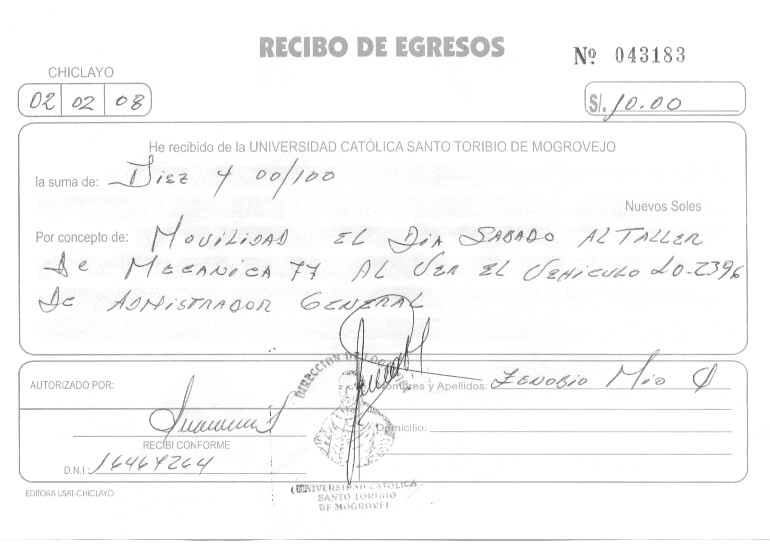 RECIBO DE EGRESOS
Nº 043183
CHICLAYO
02 02 08
S/. 10.00
He recibido de la UNIVERSIDAD CATÓLICA SANTO TORIBIO DE MOGROVEJO
la suma de: Diez y 00/100
Nuevos Soles
Por concepto de: MOVILIDAD EL DIA SABADO AL TALLER
De MECANICA 77 AL VER EL VEHICULO LO-2396
De ADMISTRADOR GENERAL
DIRECCION DE
AUTORIZADO POR:
Nombres y Apellidos: ZENOBIO Mio
RECIBI CONFORME
Domicilio:
D.N.I: 16467264
UNIVERSIDAD CATOLICA
SANTO TORIBIO
DE MOGROVEJ
EDITORA USAT-CHICLAYO